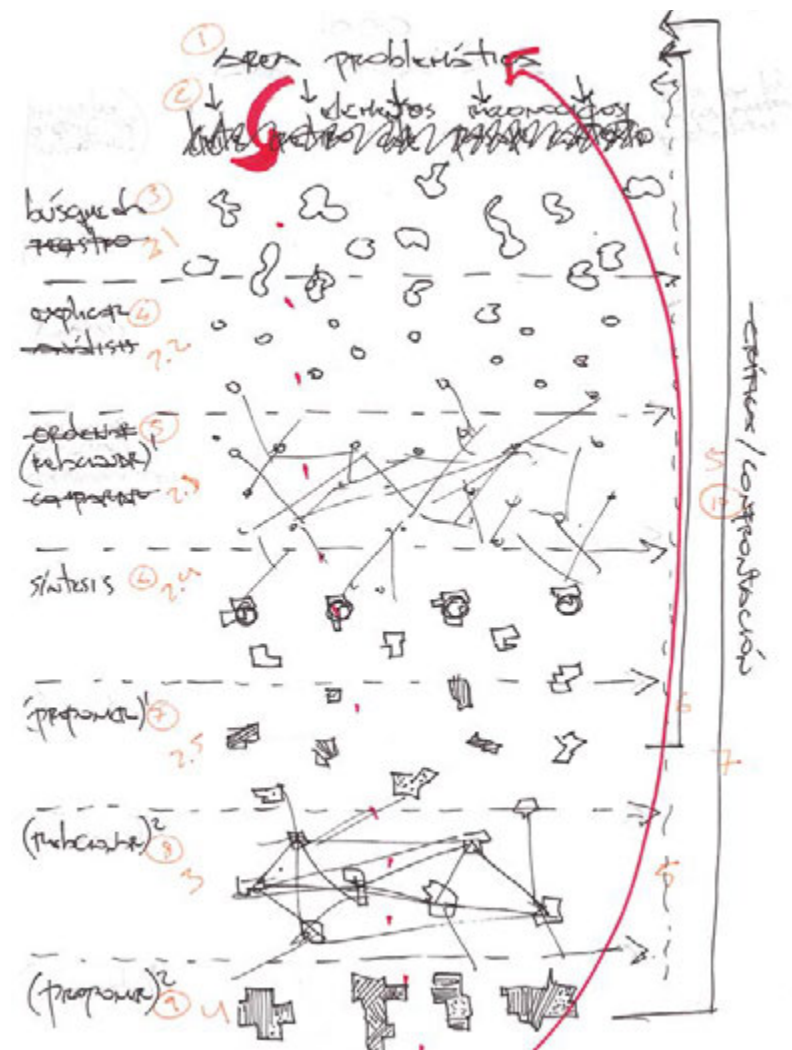 1 área problemática
2 elementos reconocidos
búsqueda 3
registro 2.1
explicar 4
análisis 2.2
ordenar 5
(relacionar)¹
comparar 2.3
síntesis 6 2.4
(proponer)¹ 7
2.5
(relacionar)² 8
3
(proponer)² 9 4
crítica / confrontación
10
5
6
7